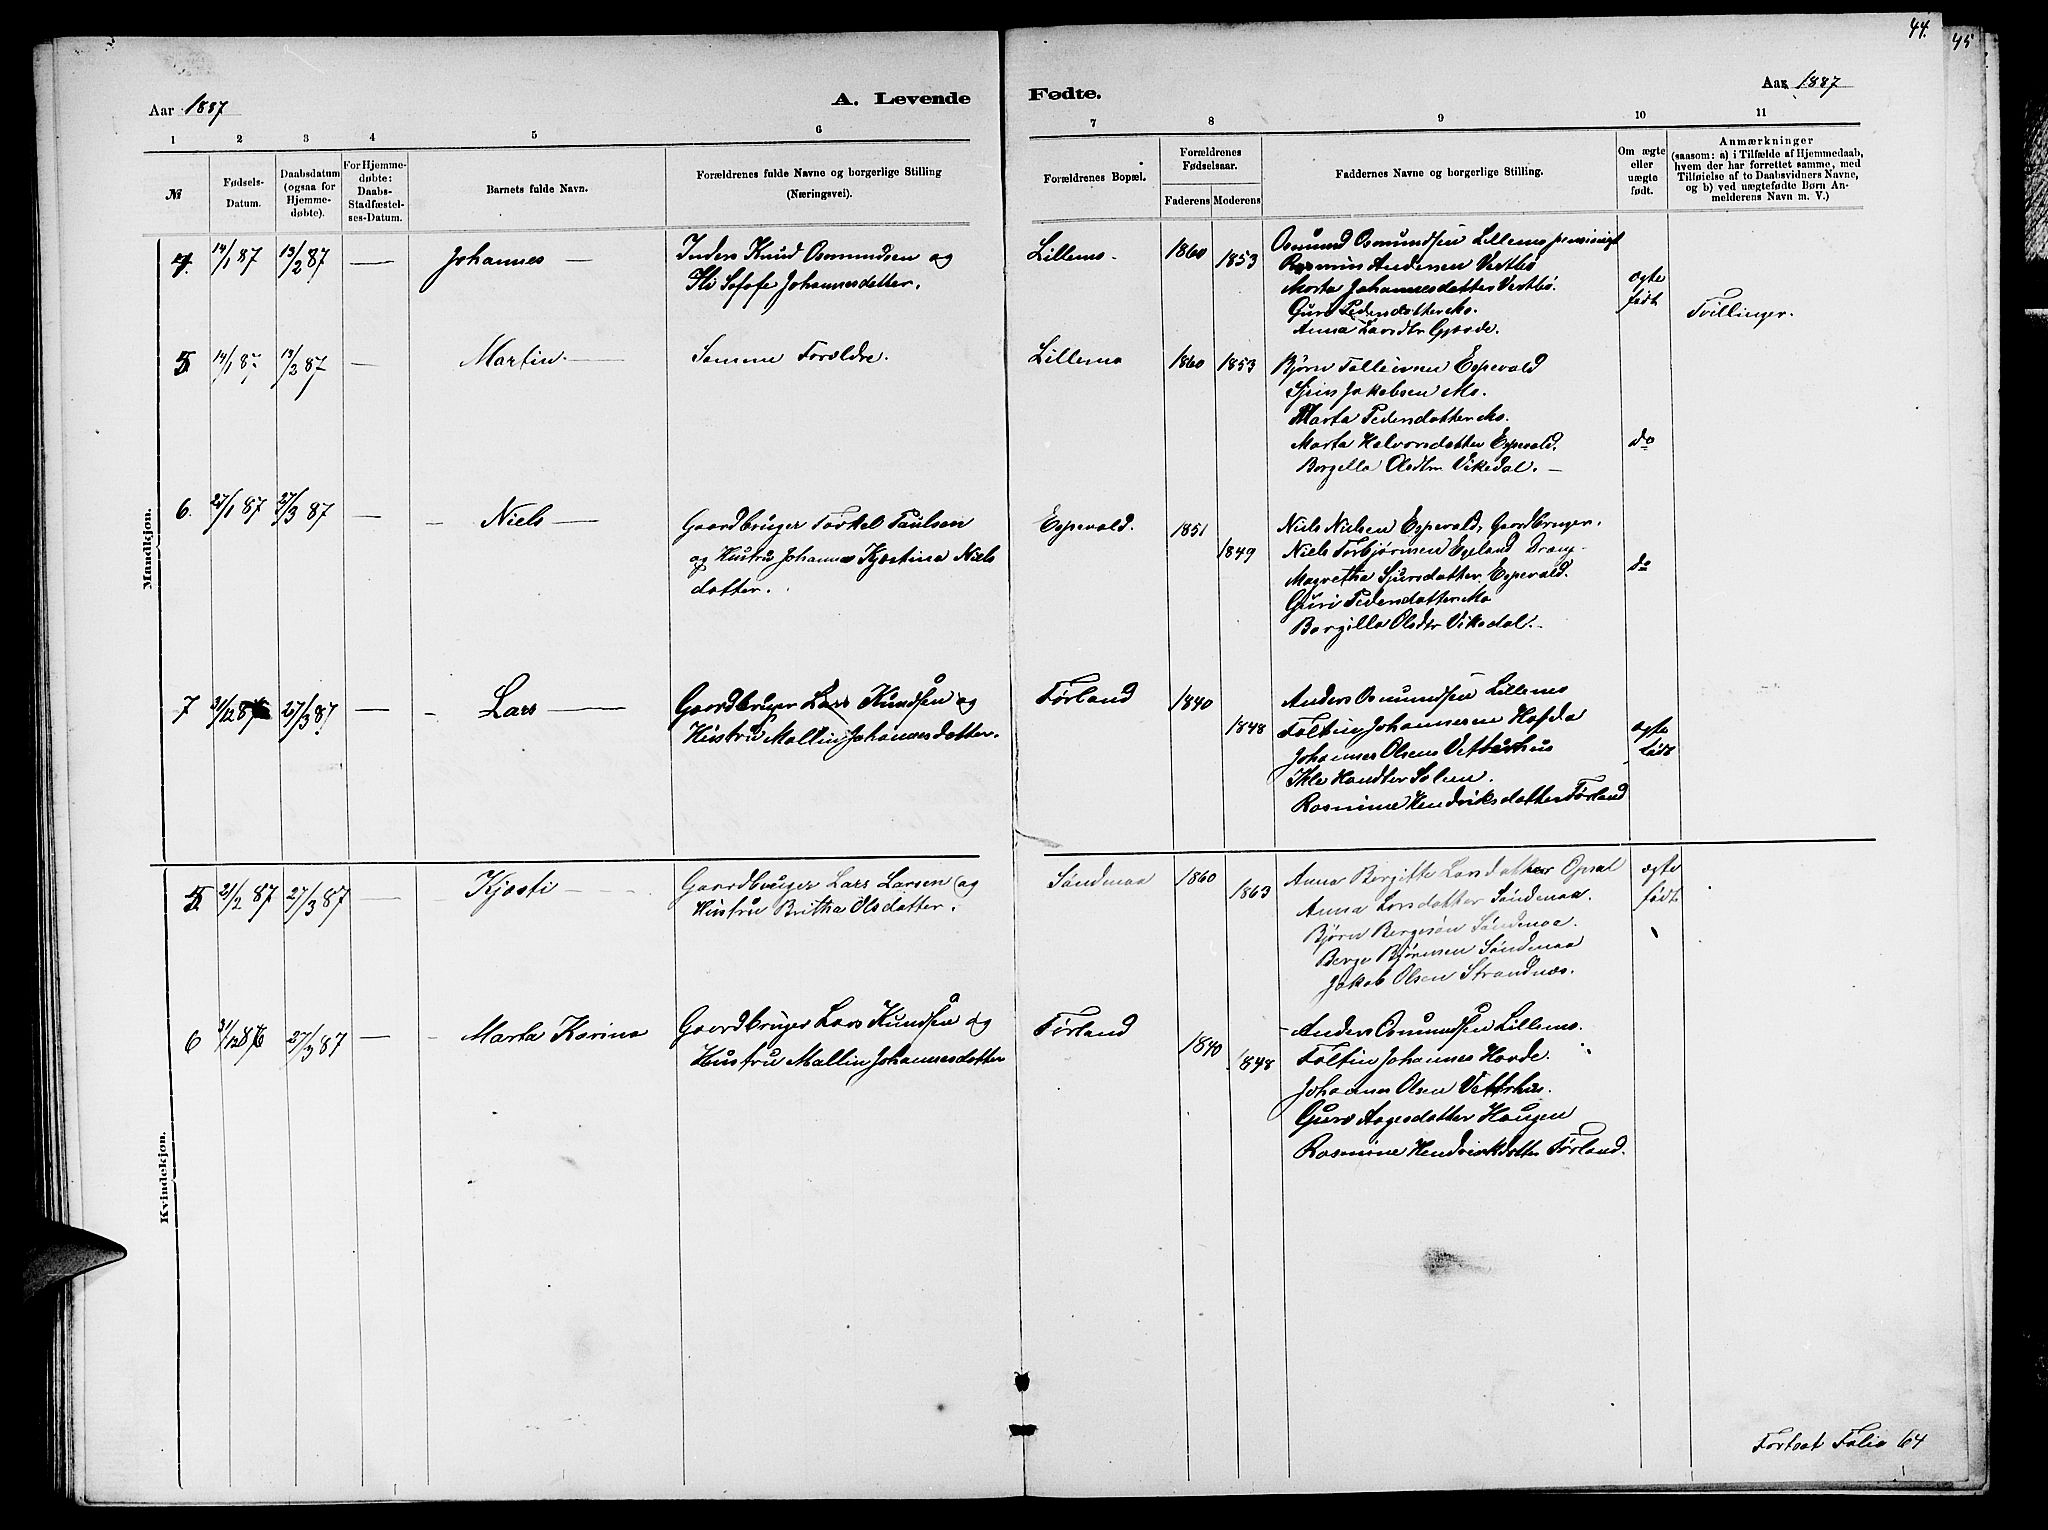 44.
45
Aar 1887
A. Levende
Fødte.
Aar 1887
1 2 3 4 5 6 7 8 9 10 11
№
Fødsels-
Datum.
Daabsdatum
(ogsaa for
Hjemme-
døbte).
For Hjemme-
døbte:
Daabs-
Stadfæstel-
ses-Datum.
Barnets fulde Navn.
Forældrenes fulde Navne og borgerlige Stilling
(Næringsvei).
Forældrenes Bopæl.
Forældrenes
Fødselsaar.
Faderens Moderens
Faddernes Navne og borgerlige Stilling.
Om ægte
eller
uægte
født.
Anmærkninger
(saasom: a) i Tilfælde af Hjemmedaab,
hvem der har forrettet samme, med
Tilføielse af to Daabsvidners Navne,
og b) ved uægtefødte Børn An-
melderens Navn m. V.)
Mandkjøn.
4. 14/1 87 13/2 87 — Johannes —
Inders Knud Osmundsen og
Johannesdatter.
Lillemo. 1860 1853
Osmund Osmundsen Lillemo
Rasmus Andersen Vestbø
Marta Johannesdatter Vestbø.
Guro Pedersdatter Mo.
Anna Larsdtr Gjerde.
ægte
født
Tvillinger.
5 14/1 87 13/2 87 — Martin. —
Samme Forældre.
Lillemo 1860 1853
Bjørn Tolleivsen Espevold
Jakobsen Mo.
Marta Pedersdatter Mo.
Marta Halvorsdatter Espevold.
Borgilla Olsdtr. Vikedal. —
do
6. 27/1 87 27/3 87 — Niels —
Gaardbruger Torkel Paulsen
og Hustru Johanne Kjestina Niels
datter.
Espevold. 1851 1849
Niels Nielsen Espevold, Gaardbruger.
Niels Torbjørnsen Egeland Dreng.
Magretha Sjursdatter Espevold.
Guri Pedersdatter Mo
Borgilla Olsdtr Vikedal.
do
7 31/12 86 27/3 87 — Lars —
Gaardbruger Lars Knudsen og
Hustru Mallin Johannesdatter.
Førland 1840 1848
Anders Osmundsen Lillemo
Foltin Johannesen Hofda
Johannes Olsens Vetterhus
Rasmine Hendriksdatter Førland
ægte
født
Kvindekjøn.
5 21/2 87 27/3 87 — Kjesti —
Gaardbruger Lars Larsen og
Hustru Britha Olsdatter.
Søndenaa 1860 1863
Anna Bergitte Larsdatter Opsal
Anna Larsdatter Søndenaa.
Bjørn Bergesøn Søndenaa.
Berge Bjørnsen Søndenaa
Jakob Olsen Strandnæs.
ægte
født
6 31/12 86 27/3 87 — Marta Karina
Gaardbruger Lars Knudsen og
Hustru Mallin Johannesdatter
Førland 1840 1848
Anders Osmundsen Lillemo.
Foltin Johannes Hovde.
Johannes Olsen Vetrhus.
Guro Aagesdatter Haugen
Rasmine Hendriksdatter Førland.
Fortsat Folio 64